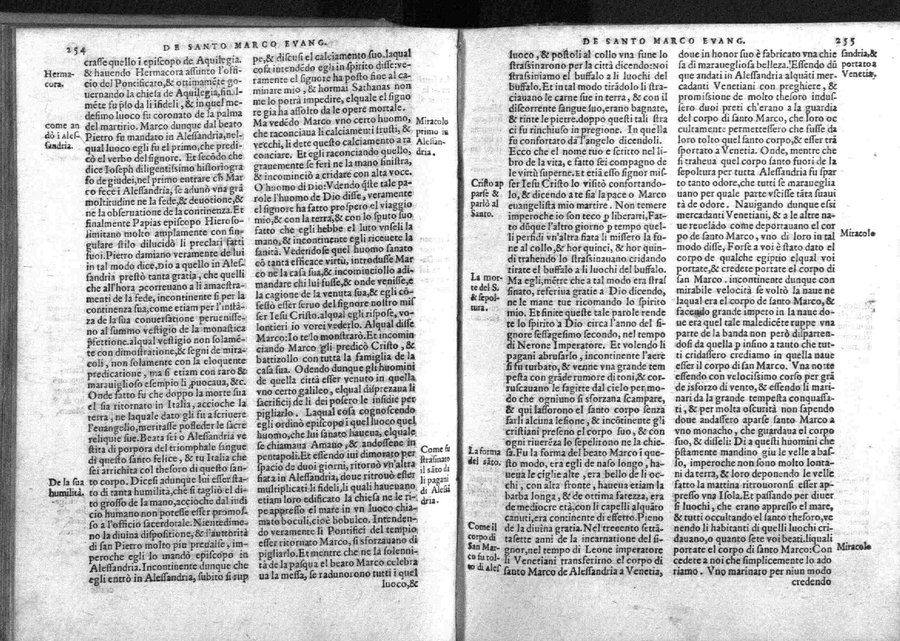 254
DE SANTO MARCO EVANG.
Hermacora.
come andò i alessandria.
De la sua humilità.
crasse quello i episcopo de Aquilegia.
& hauendo Hermacora assunto l'offi
cio del Pontificato, & ottimaméte go
uernando la chiesa de Aquilegia, finl-
méte fu pso da li ifideli, & in quel me
desimo luoco fu coronato de la palma
del martirio. Marco dunque dal beato
Pietro fu mandato in Alessandria, nel-
qual luoco egli fu el primo, che predi-
cò el verbo del signore. Et secõdo che
dice Ioseph diligentissimo historiogra
fo de giudei, nel primo entrare ch̃ Mar
co fece i Alessandria, se adunò vna grã
moltitudine ne la fede, & deuotione, &
ne la obseruatione de la continenza. Et
finalmente Papias episcopo Hieroso-
limitano molto amplamente con sin-
gulare stilo dilucidò li preclari fatti
fuoi. Pietro damiano veramente de lui
in tal modo dice, Dio a quello in Ales-
sandria prestò tanta gratia, che quelli
che all'hora pcorreuano a li amaestra-
menti de la fede, incontinente si per la
continenza sua, come etiam per l'instã-
za de la sua conuersatione peruenisse-
no al summo vestigio de la monastica
pfettione. alqual vestigio non solamé-
te con dimostratione, & segni de mira-
coli, non solamente con la eloquente
predicatione, ma si etiam con raro &
marauiglioso esempio li puocaua, &c.
Onde fatto fu che doppo la morte sua
el sia ritornato in Italia, accioche la
terra, ne laquale dato gli fu a scriuere
l'euangelio, meritasse posseder le sacre
reliquie sue. Beata sei o Alessandria ve
stita di porpora del triomphale singue
di questo santo felice, & tu Italia che
sei arrichita col thesoro di questo san-
to corpo. Dicesi adunque lui esser sta-
to di tanta humilità, che si tagliò el di-
to grosso de la mano, accioche dal iudi
cio humano non potesse esser promos-
so a l'officio sacerdotale. Nientedime-
no la diuina dispositione, & l'autorità
di san Pietro molto piu preualse, im-
peroche egli lo mandò episcopo in
Alessandria. Incontinente dunque che
egli entrò in Alessandria, subito si rup
pe, & discusi el calciamento suo. laqual
cosa intendẽdo egli in spirito disse: ve-
ramente el signore ha posto fine al ca-
minare mio, & hormai Sathanas non
me lo potrà impedire, elquale el signo
re gia ha assolto da le opere mortale.
Ma vedẽdo Marco vno certo huomo,
che raconciaua li calciamenti frusti, &
vecchi, li dete questo calciamento a ra
conciare. Et egli raconciando quello,
grauemente se ferì ne la mano sinistra,
& incominciò a cridare con alta voce.
O huomo di Dio: Vdendo q̃ste tale pa-
role l'huomo de Dio disse, veramente
el signore ha fatto prospero el viaggio
mio, & con la terra, & con lo sputo suo
fatto che egli hebbe el luto vnseli la
mano, & incontinente egli riceuete la
sanità. Vedendose quel huomo sanato
cò tanta efficace virtù, introdusse Mar
co ne la casa sua, & incominciollo adi-
mandare chi lui fusse, & onde venisse, e
la cagione de la venuta sua, & egli cõ-
fessò esser seruo del signore nostro mis
ser Iesu Cristo. alqual egli rispose, vo-
lontieri io vorei vederlo. Alqual disse
Marco: Io te lo monstrarò. Et incomin
ciando Marco gli predicò Cristo, &
battizollo con tutta la famiglia de la
casa sua. Odendo dunque gli huomini
de quella città esser venuto in quella
vno certo galileo, elqual dispreziaua li
sacrificij de li dei posero le insidie per
pigliarlo. Laqual cosa cognoscendo
egli ordinò episcopo i quel luoco quel
huomo, che lui sanato haueua, elquale
se chiamaua Amano, & andossene in
pentapoli. Et essendo iui dimorato per
spacio de duoi giorni, ritornò vn'altra
fiata in Alessandria, doue ritrouò esser
multiplicati li fideli, li quali haueuano
etiam loro edificato la chiesa ne le ri-
pe appresso el mare in vn luoco chia-
mato boculi, cioè bobulce. Intenden-
do veramente li Pontifici del tempio
esser ritornato Marco, si sforzauano di
pigliarlo. Et mentre che ne la solenni-
tà de la pasqua el beato Marco celebra
ua la messa, se radunorono tutti i quel
luoco, &
Miracolo primo in Alessandria.
Come fu strassinato il sãto da li pagani di Alesãdria.
235
DE SANTO MARCO EVANG.
Cristo apparse & parlò al Santo.
La morte del S. & sepoltura.
La forma del sãto.
Come il corpo di San Marco fu tolto di ales
luoco, & postoli al collo vna fune lo
strassinorono per la città dicendo: noi
strassiniamo el buffalo a li luochi del
buffalo. Et in tal modo tirãdolo li stra-
ciauano le carne sue in terra, & con il
discorrente sangue suo, erano bagnate,
& tinte le pietre. doppo questi tali stra
ci fu rinchiuso in pregione. In quella
fu confortato da l'angelo dicendoli.
Ecco che el nome tuo e scritto nel li-
bro de la vita, e fatto sei compagno de
le virtù superne. Et etiã esso signor mis-
ser Iesu Cristo lo visitò confortando-
lo, & dicendo a te sia la pace o Marco
euangelista mio martire. Non temere
imperoche io son teco p liberarti, Fat-
to dũque l'altro giorno p tempo quel-
li perfidi vn'altra fiata li missero la fu-
ne al collo, & hor quinci, & hor quin-
di trahendo lo strassinauano. cridando
tirate el buffalo a li luochi del buffalo.
Ma egli, mẽtre che a tal modo era stras-
sinato, referiua gratie a Dio dicendo,
ne le mane tue ricomando lo spirito
mio. Et finite queste tale parole rende
te lo spirito a Dio circa l'anno del si-
gnore sessagesimo secondo, nel tempo
di Nerone Imperatore. Et volendo li
pagani abrusarlo, incontinente l'aere
si fu turbato, & venne vna grande tem
pesta con grãde rumore di toni, & co-
ruscauano le sagitte dal cielo per mo-
do che ogniuno si sforzaua scampare,
& qui lassorono el santo corpo senza
farli alcuna lesione, & incõtinente gli
cristiani preseno el corpo suo, & con
ogni riuerẽza lo sepelirono ne la chie-
sa. Fu la forma del beato Marco i que-
sto modo, era egli de naso longo, ha-
ueua le ciglie alte, era bello de li oc-
chi, con alta fronte, haueua etiam la
barba longa, & de ottima fatezza, era
de mediocre età, con li capelli alquãto
canuti, era continente di affetto. Pieno
de la diuina gratia. Nel trecento setã-
tasette anni de la incarnatione del si-
gnor, nel tempo di Leone imperatore
li Venetiani transferirno el corpo di
santo Marco de Alessandria a Venetia,
doue in honor suo è fabricato vna chie
sa di marauegliosa belleza. Essendo dũ
que andati in Alessandria alquãti mer-
cadanti Venetiani con preghiere, &
promissione de molto thesoro indus-
sero duoi preti ch'erano a la guardia
del corpo di santo Marco, che loro oc
cultamente permettessero che fusse da
loro tolto quel santo corpo, & esser trã
sportato a Venetia. Onde, mentre che
si traheua quel corpo santo fuori de la
sepoltura per tutta Alessandria fu spar
to tanto odore, che tutti se marauiglia
uano per quale parte vscisse tãta suaui
tà de odore. Nauigando dunque essi
mercadanti Venetiani, & a le altre na-
ue reuelado come deportauano el cor
po de santo Marco, vno di loro in tal
modo disse, Forse a voi è stato dato el
corpo de qualche egiptio elqual voi
portate, & credete portare el corpo di
san Marco. incontinente dunque con
mirabile velocità se voltò la naue ne
laqual era el corpo de santo Marco, &
facendo grande impeto in la naue do-
ue era quel tale maledicẽte ruppe vna
parte de la banda non però disparten-
dosi da quella p infino a tanto che tut-
ti cridassero crediamo in quella naue
esser il corpo di san Marco. Vna notte
essendo con velocissimo corso per grã
de isforzo di vento, & essendo li mari-
nari da la grande tempesta conquassa-
ti, & per molta oscurità non sapendo
doue andassero aparse santo Marco a
vno monacho, che guardaua el corpo
suo, & disseli: Di a questi huomini che
pstamente mandino giu le velle a bas-
so, imperoche non sono molto lonta-
ni da terra, & loro deponendo le velle
fatto la mattina ritruoronsi esser ap-
presso vna Isola. Et passando per diuer
si luochi, che erano appresso el mare,
& tutti occultando el santo thesoro, ve
nendo li habitanti di quelli luochi cri-
dauano, o quanto sete voi beati. liquali
portate el corpo di santo Marco: Con
cedete a noi che simplicemente lo ado
riamo. Vno marinaro per niun modo
credendo
sandria, & portato a Venetia.
Miracolo
Miracolo